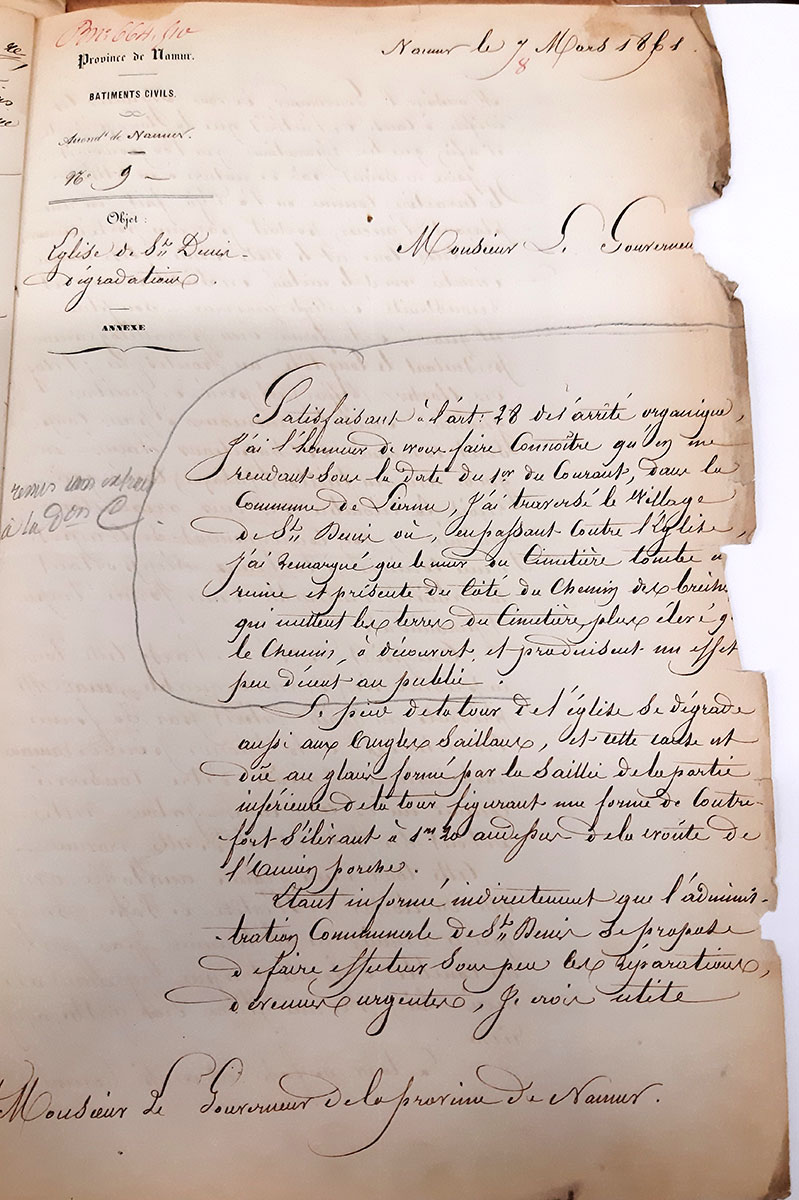 Province de Namur.
Namur le 7 Mars 1861.
8
BATIMENTS CIVILS.
Arrondt de Namur.
No. 9
Objet :
Eglise de St. Denis-
dégradations.
Monsieur Le Gouverneu
ANNEXE
Satisfaisant à l'art: 28 de l'arrêté organique,
J'ai l'honneur de vous faire Connoître qu'en me
rendant sous la date du 1er du Courant, dans la
Commune de Liernu, J'ai traversé le Village
de St. Denis où, en passant Contre l'Eglise,
J'ai remarqué que le mur du Cimetière tombe en
ruine et présente du Côté du Chemin des brèches
qui mettent les terres du Cimetière, plus élevé q
le Chemin, à découvert et produisent un effet
peu décent au public.
remis un extrait
à la Don C.
Le pied de la tour de l'église Se dégrade
aussi aux Angles Saillans, et cette cause est
düe au glacis formé par la Saillie de la partie
inférieure de la tour figurant une forme de Contre-
fort S'élevant à 1m 20 au dessus de la voûte de
l'Ancien porche.
Etant informé indirectement que l'adminis-
tration Communale de St. Denis Se propose
de faire effectuer Sous peu les réparations,
devenues urgentes, Je crois utile
Monsieur Le Gouverneur de la province de Namur.